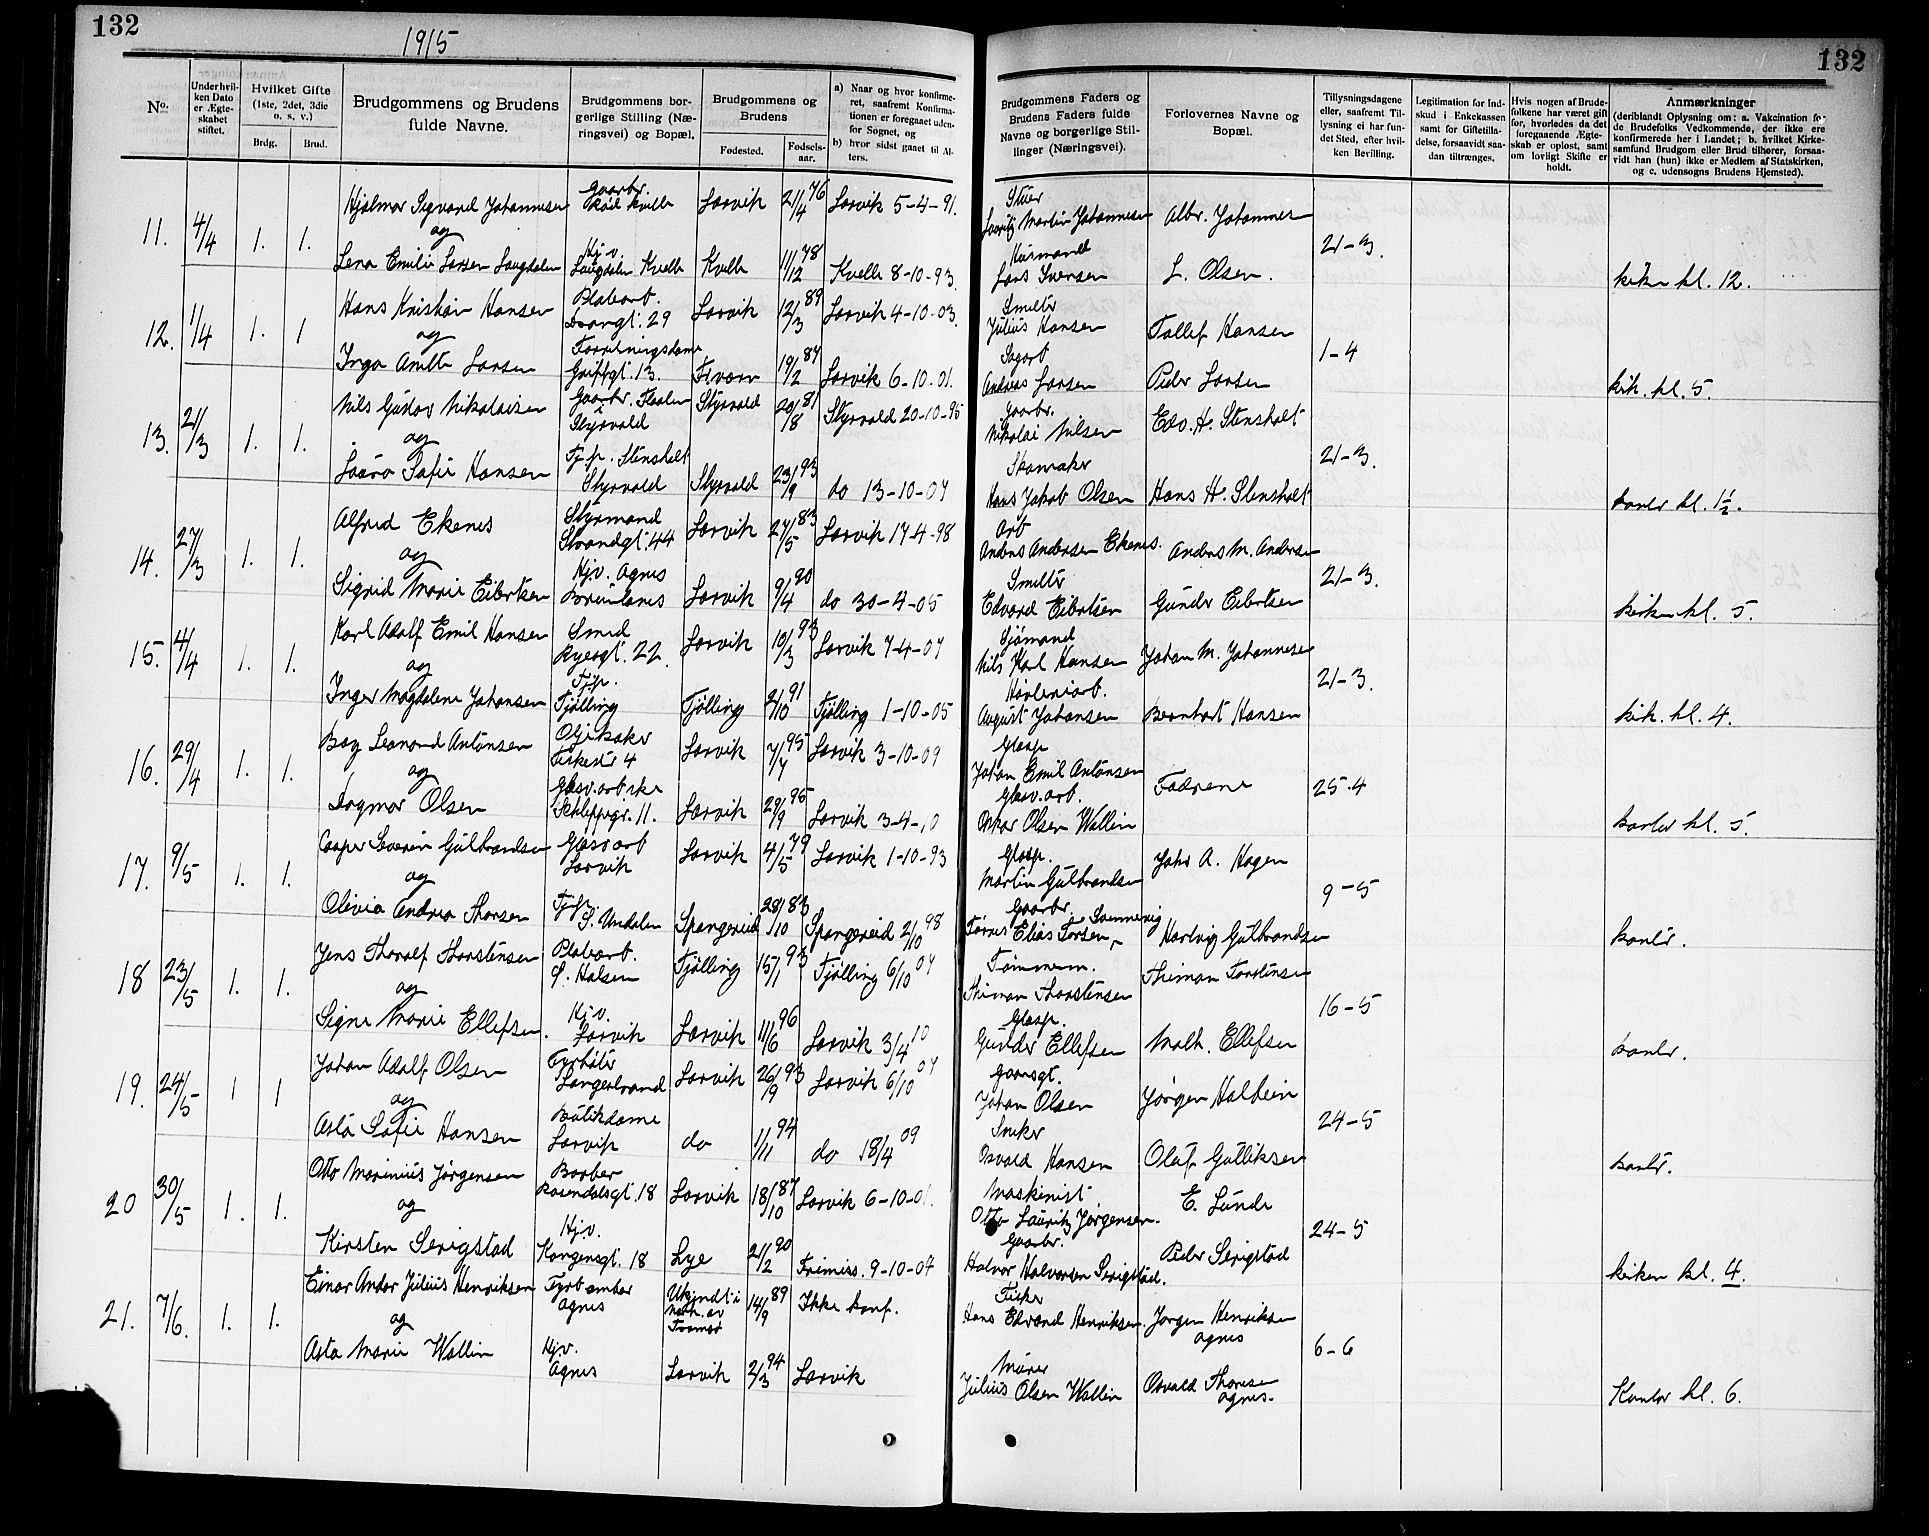 132
1915
132
No.
Underhvil-
ken Dato
er Ægte-
skabet
stiftet.
Hvilket Gifte
(1ste, 2det, 3die
o. s. v.)
Brdg.
Brud.
Brudgommens og Brudens
fulde Navne.
Brudgommens bor-
gerlige Stilling (Næ-
ringsvei) og Bopæl.
Brudgommens og
Brudens
Fødested.
Fødsels-
aar.
a) Naar og hvor konfirme-
ret, saafremt Konfirma-
tionen er foregaaet uden-
for Sognet, og
b) hvor sidst gaaet til Al-
ters.
Brudgommens Faders og
Brudens Faders fulde
Navne og borgerlige Stil-
linger (Næringsvei).
Forlovernes Navne og
Bopæl.
Tillysningsdagene
eller, saafremt Til-
lysning ei har fun-
det Sted, efter hvil-
ken Bevilling.
Legitimation for Ind-
skud i Enkekassen
samt for Giftetilla-
delse, forsaavidt saa-
dan tiltrænges.
Hvis nogen af Brude-
folkene har været gift
før, hvorledes da det
foregaaende Ægte-
skab er opløst, samt
om lovligt Skifte er
holdt.
Anmærkninger
(deriblandt Oplysning om: a. Vakcination fo-
de Brudefolks Vedkommende, der ikke ere
konfirmerede her i Landet; b. hvilket Kirke-
samfund Brudgom eller Brud tilhører, forsaa-
vidt han (hun) ikke er Medlem af Statskirken,
og c. udensogns Brudens Hjemsted).
11. 4/4 1. 1.
Hjalmar Sigvard Johannesen
og
Lena Emilie Larsen Laugdalen
Gaarbr.
Kvelle
Hj.v.
Laugdalen Kvelle
Larvik 21/4 76 Larvik 5-4-91.
Kvelle 11/12 78 Kvelle 8-10-93.
Lauritz Martin Johannesen
Husmand
Lars Iversen
Albr. Johannesen
L. Olsen.
21-3.
kirken kl. 12.
12. 1/4 1. 1
Hans Kristian Hansen
og
Inga Anette Larsen
Pladearb.
29
Forretningsdame
13.
Larvik 12/3 89 Larvik 4-10-03.
19/2 87 Larvik 6-10-01.
Smelter
Julius Hansen
Sagarb
Andreas Larsen
Tallef Hansen
Peder Larsen
1-4
kirk. kl. 5.
13. 21/3 1. 1.
Nils Gustav Nikolaisen
og
Laura Sofie Hansen
Gaarbr.
Styrvold
Tj.p. Stensholt
Styrvold
Styrvold 20/8 81 Styrvold 20-10-95
Styrvold 23/9 93 do 13-10-07
Gaarbr.
Nikolai Nilsen
Skomaker
Hans Jakob Olsen
Edv. H. Stensholt
Hans H. Stensholt
21-3.
kontor kl. 1½.
14. 27/3 1. 1.
Alfred Ekenes
og
Sigrid Marie Eilertsen
Styrmand
Strandgt. 44
Hj.v. Agnes
Brunlanes
Larvik 27/5 83 Larvik 17-4-98
Larvik 9/4 90 do 30-4-05
Arb
Anders Andersen Ekenes.
Smelter
Edvard Eilertsen
Anders M. Andersen
Gunder Eilertsen
21-3.
kirken kl. 5.
15. 4/4 1. 1.
Karl Adolf Emil Hansen
og
Inger Magdalene Johansen
Smed
Ryesgt. 22.
Tj.p.
Tjølling
Larvik 10/3 93 Larvik 7-4-07
Tjølling 2/10 91 Tjølling 1-10-05
Sjømand
Nils Karl Hansen
Høvleriarb.
August Johansen
Johan M. Johannesen
Bernhart Hansen
21-3.
kirk. kl. 4.
16. 29/4 1. 1.
Leonard Antonsen
og
Dagmar Olsen
4
Glasv.arbske
11.
Larvik 7/7 95 Larvik 3-10-09
Larvik 29/9 95 Larvik 3-4-10
Glasp
Johan Emil Antonsen
Glasv.arb.
Oskar Olsen Wallin
Fædrene
25-4
kontor kl. 5.
17. 9/5 1. 1.
Casper Severin Gulbrandsen
og
Olivia Andrea Thorsen
Glasv arb
Larvik
Tj.p.
S. Undalen
Larvik 4/5 79 Larvik 1-10-93
Spangereid 28/10 83 Spangereid 2/10 98
Glasp.
Martin Gulbrandsen
Gaarbr.
Tørres Elias Torsen
Johs A. Hagen
Hartvig Gulbrandsen
9-5
kontor.
18 23/5 1. 1.
Jens Thoralf Thorstensen
og
Signe Marie Ellefsen.
Pladearb.
S. Halsen
Hj.v.
Larvik
Tjølling 15/1 93 Tjølling 6/10 07
Larvik 11/6 96 Larvik 3/4 10
Tømmerm.
Thiman Thorstensen
Glasp.
Gunder Ellefsen
Thiman Torstensen
Math. Ellefsen
16-5
kontor.
19. 24/5 1 1
Johan Adolf Olsen
og
Asta Sofie Hansen
Fyrbøter
Langestrand
Butikdame
Larvik
Larvik 26/9 93 Larvik 6/10 07
do 1/11 94 do 18/4 09
Gaardsgt.
Johan Olsen
Sniker
Osvald Hansen
Jørgen Halbein
Olaf Gulliksen
24-5
kontor.
20 30/5 1. 1.
Otto Marinius Jørgensen
og
Kirsten Serigstad
Barber
Rosendalsgt. 18
Hj.v.
Kongensgt. 18
Larvik 18/10 87 Larvik 6-10-01.
Lye 21/2 90 9-10-04
Maskinist
Otto Lauritz Jørgensen.
Gaarbr.
Halvor Halvorsen Serigstad.
E. Lunde
Peder Serigstad
24-5
kirken kl. 4.
21. 7/6. 1. 1.
Einar Andor Julius Henriksen
og
Asta Marie Wallin
Agnes
Hj.v.
Agnes
Ukjendt i
Tromsø
14/9 89 Ikke konf.
Larvik 2/3 94 Larvik
Fisker
Hans Edvard Henriksen.
Murer
Julius Olsen Wallin
Jørgen Henriksen
Agnes
Osvald Thoresen
Agnes.
6-6
Kontor kl. 6.